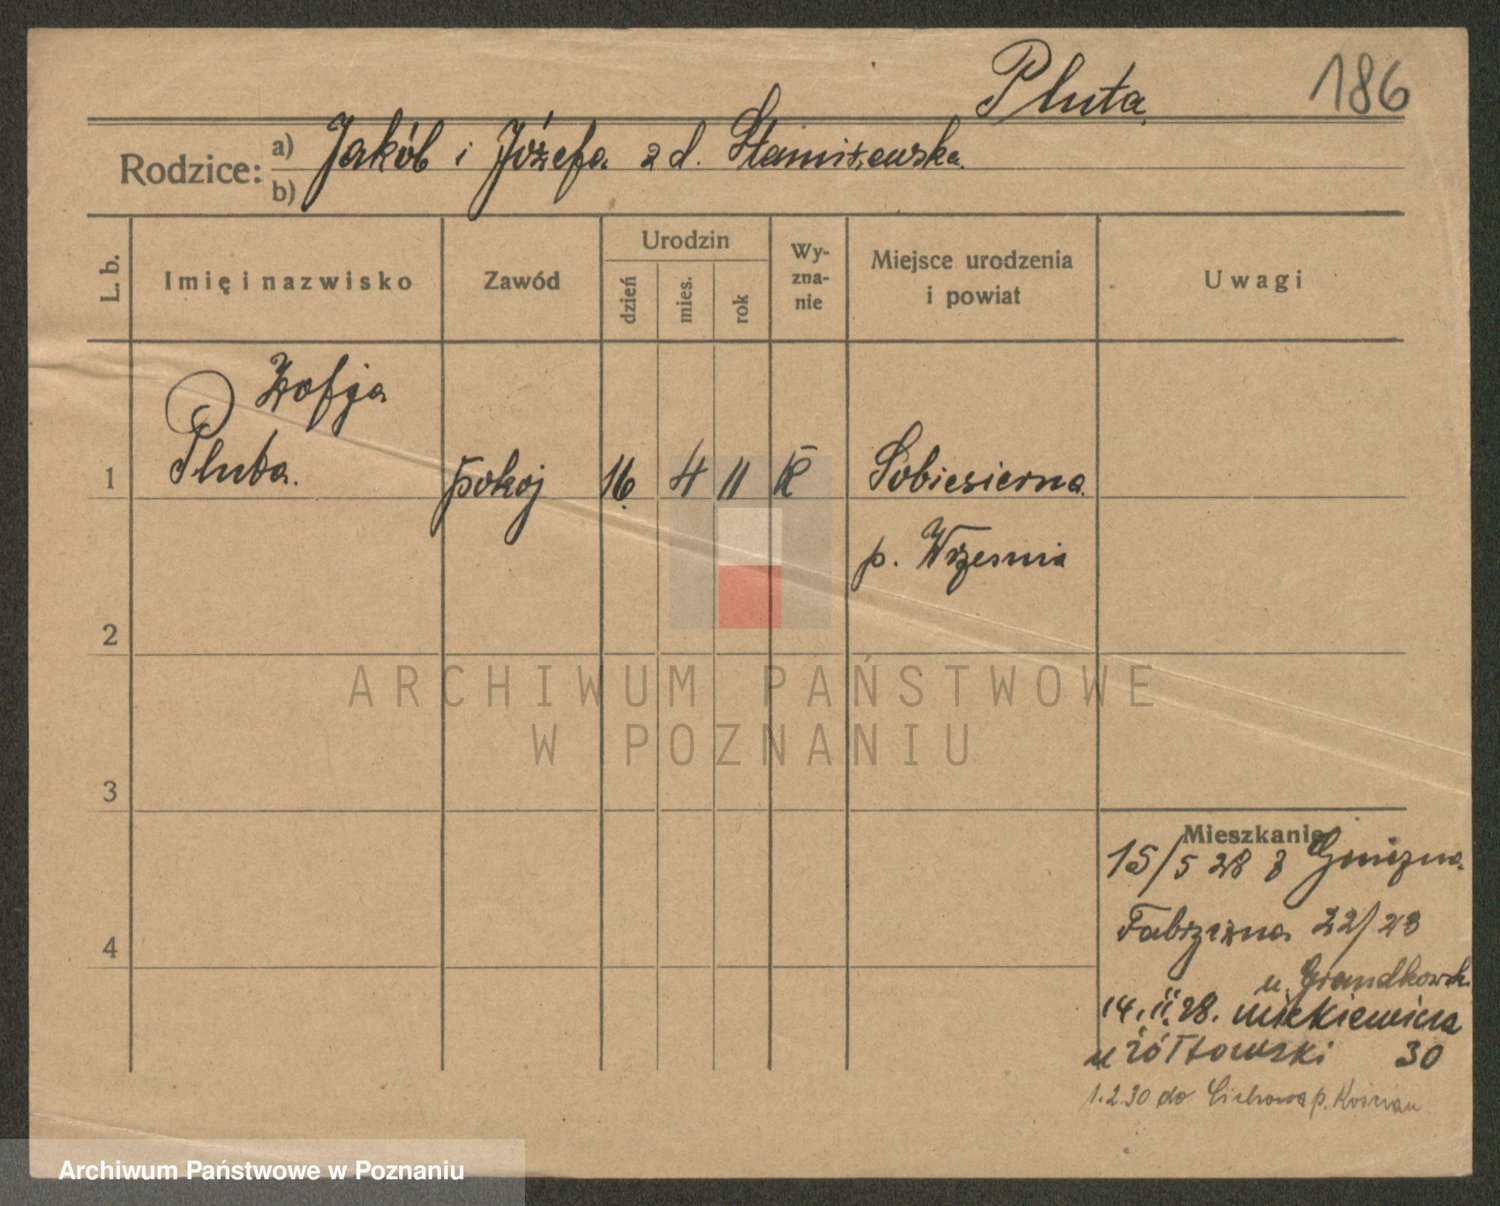 Pluta
186
Rodzice: a) Jakób i Józefa z d. Staniszewska
b)
L. b.
Imię i nazwisko
Zawód
Urodzin
dzień
mies.
rok
Wy-
zna-
nie
Miejsce urodzenia
i powiat
Uwagi
Zofja
1 Pluta. pokoj 16 4 11 K Sobiesierna
p. Wrzesnia
2
3
4
Mieszkanie
15/5 28 z Gniezna
Fabryczna 22/23
u.
14. 11. 28. Mickiewicza
u Żółtowski 30
1.2.30 do Cichowa p. Kościan
ARCHIWUM PAŃSTWOWE
W POZNANIU
Archiwum Państwowe w Poznaniu